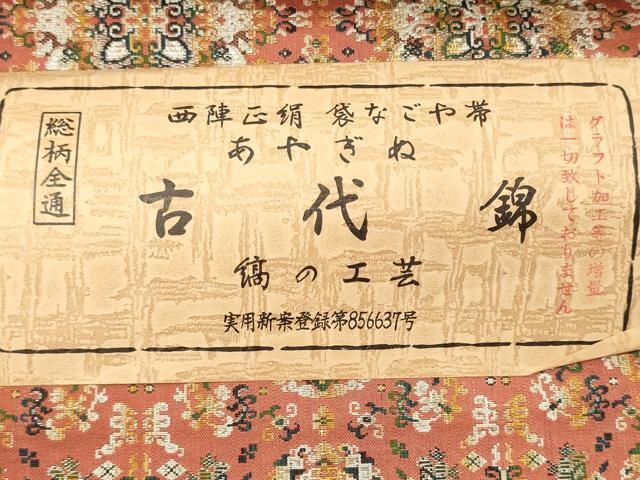 西陣正絹 袋なごや帯
あやぎぬ
古代錦
縞の工芸
実用新案登録第856637号
総柄全通
グラフト加工等の増量
は一切致しておりません